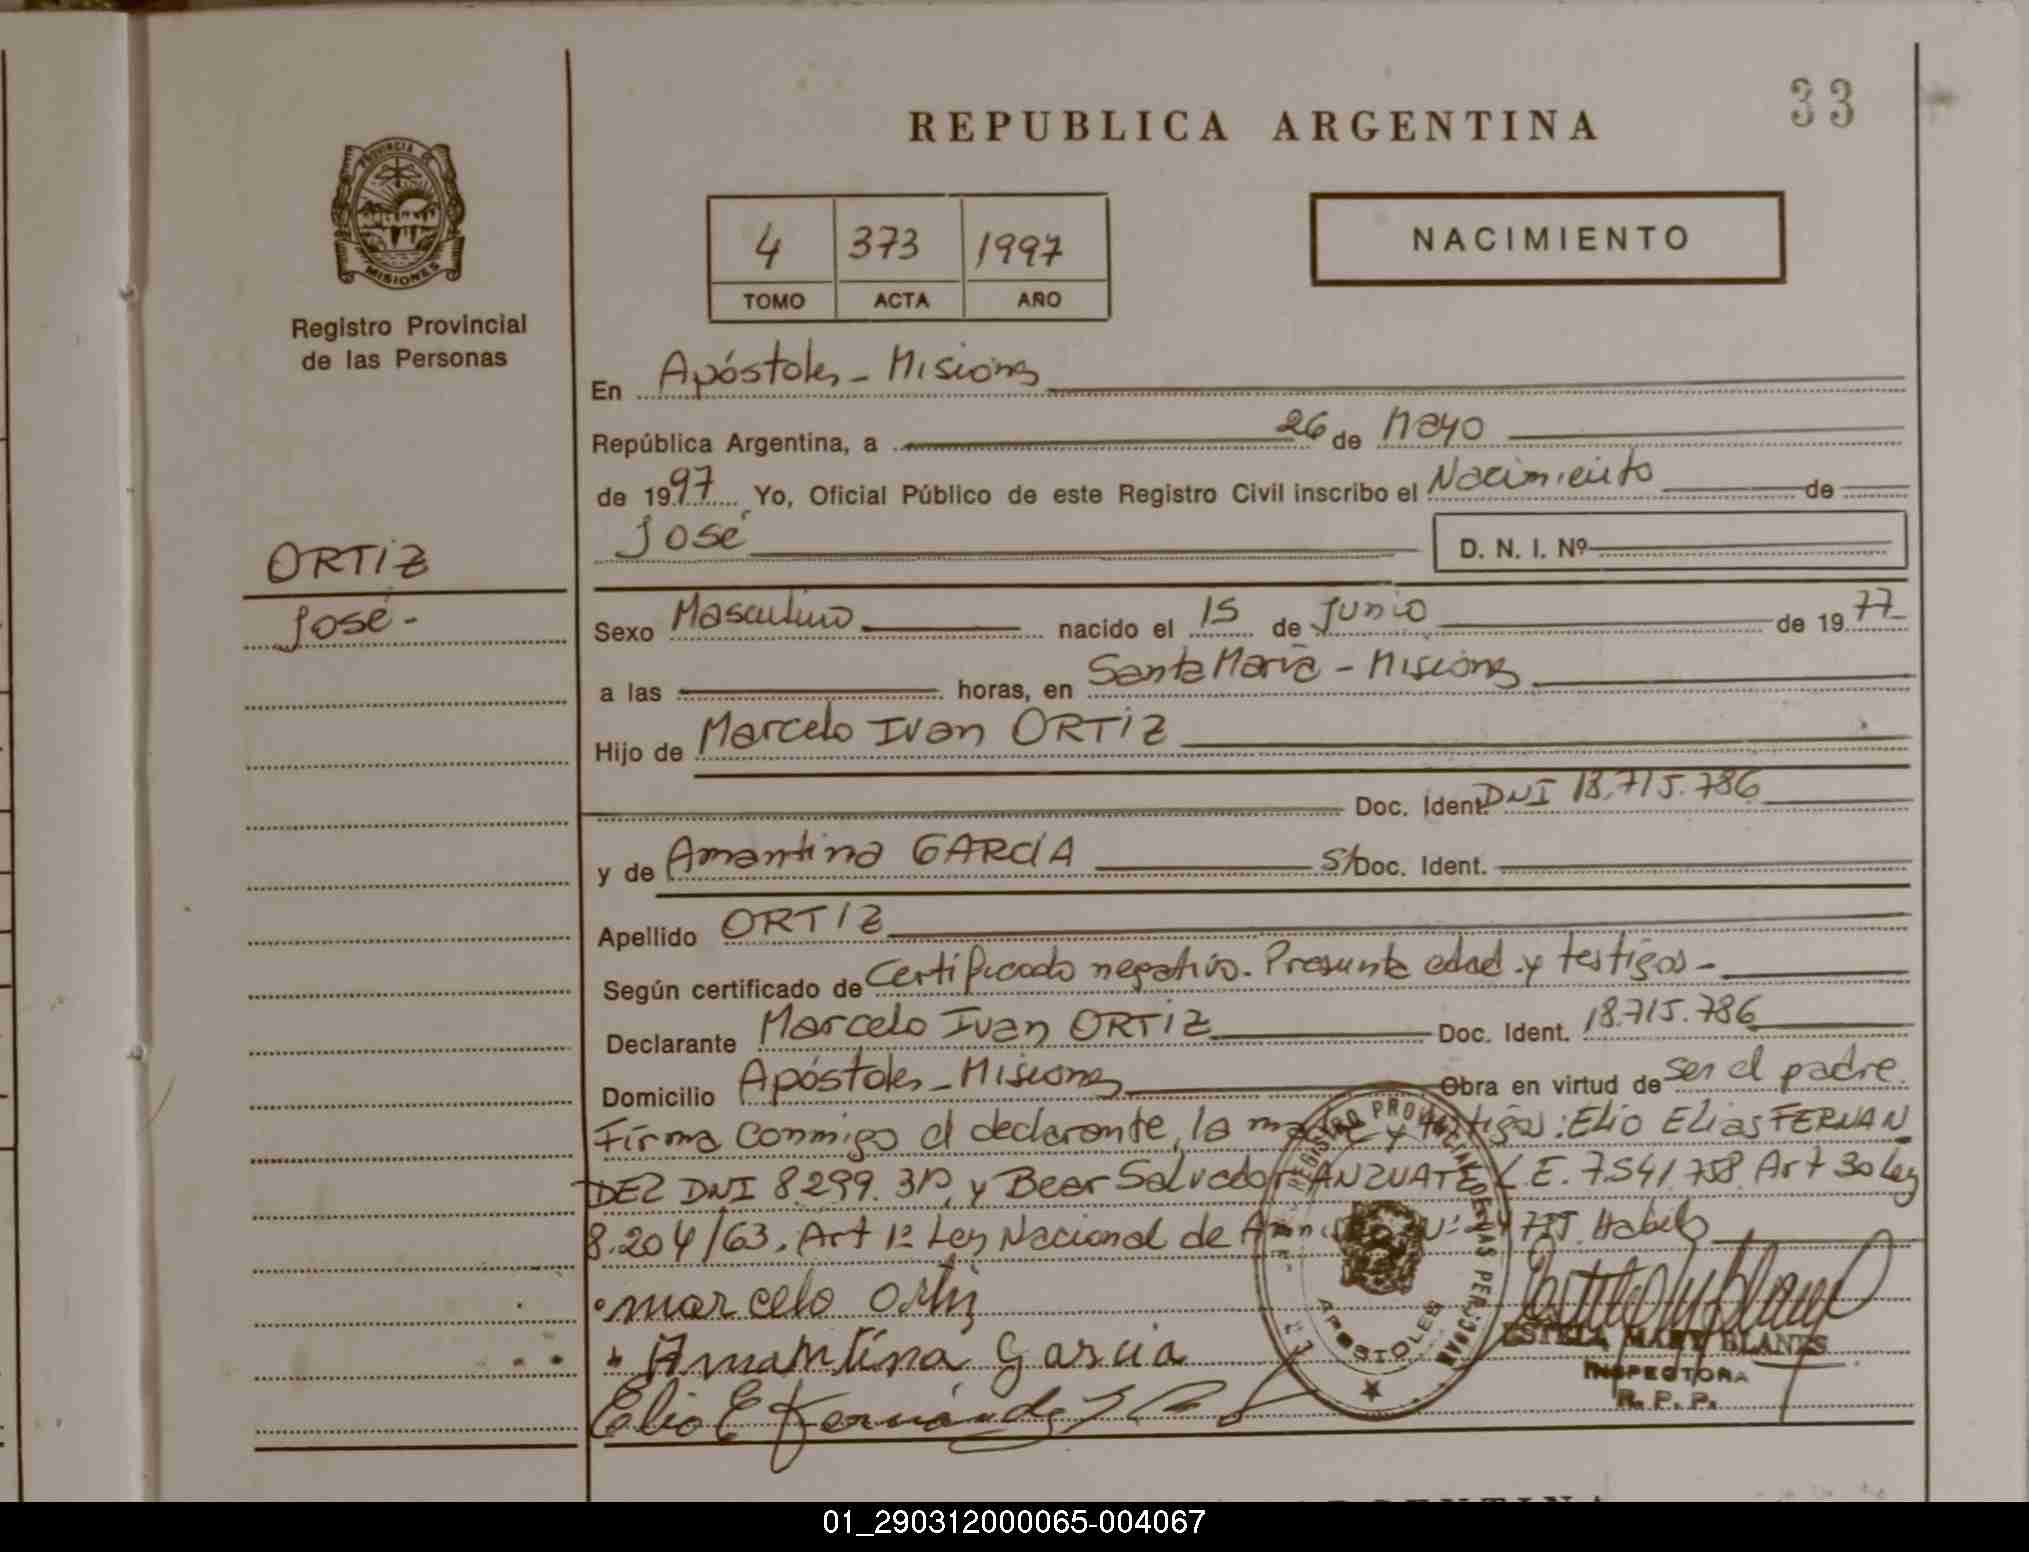 33
REPUBLICA ARGENTINA
PROVINCIA DE
MISIONES
Registro Provincial
de las Personas
4 373 1997
TOMO ACTA AÑO
NACIMIENTO
En Apóstoles - Misiones
República Argentina, a 26 de Mayo
de 1997 Yo, Oficial Público de este Registro Civil inscribo el Nacimiento de
José D. N. I. Nº
ORTIZ
José -
Sexo Masculino nacido el 15 de Junio de 1977
a las horas, en Santa María - Misiones
Hijo de Marcelo Ivan ORTIZ
Doc. Ident. DNI 18.715.786
y de Amantina GARCIA S/Doc. Ident.
Apellido ORTIZ
Según certificado de Certificado negativo. Presunta edad y testigos -
Declarante Marcelo Ivan ORTIZ Doc. Ident. 18.715.786
Domicilio Apóstoles - Misiones Obra en virtud de ser el padre
Firma conmigo el declarante, la madre y testigos: Elio Elias FERNAN
DEZ DNI 8.299. y Bear Salvador ANZUATE L.E. 7.541.758. Art 30 Ley
8.204/63. Art 1º Ley Nacional de Habil
marcelo Ortiz
Amantina Garcia
Elio E Fernández
REGISTRO PROVINCIAL DE LAS PERSONAS
APOSTOLES
ESTELA MARY BLANES
INSPECTORA
R. P. P.
01_290312000065-004067